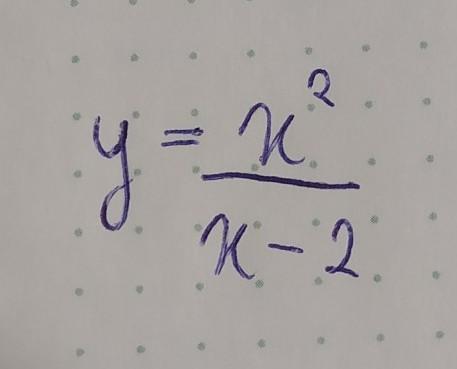 y = x²/(x - 2)